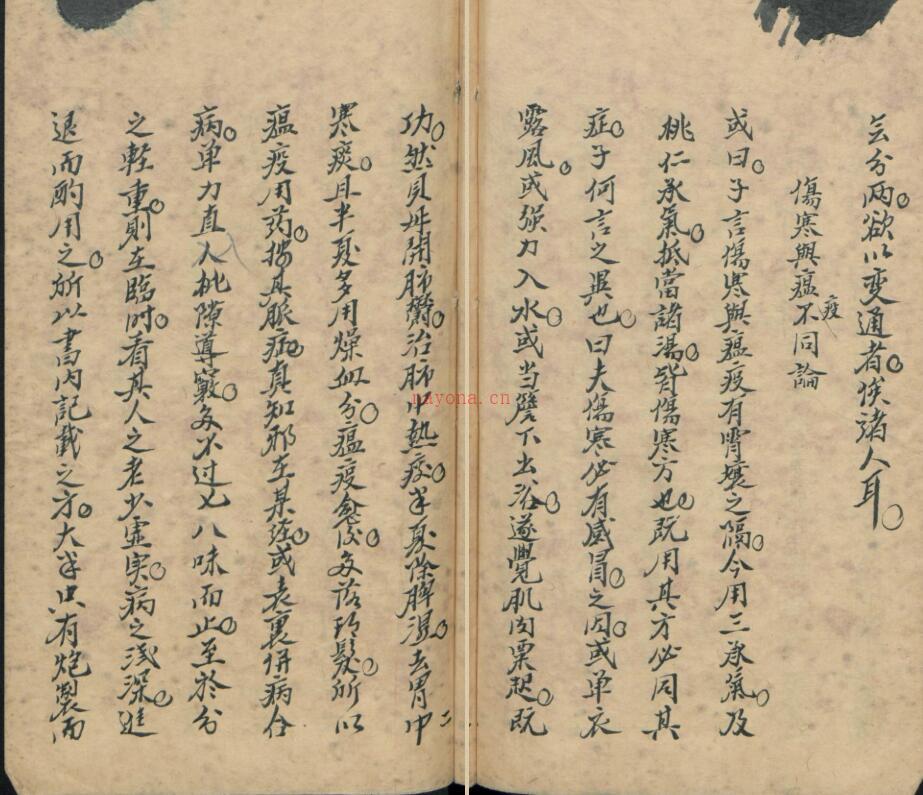 无分两欲以變通者俟諸人耳
傷寒與瘟疫不同論
或曰子言傷寒與瘟疫有霄壤之隔今用三承氣及
桃仁承氣抵當諸湯皆傷寒方也既用其方必同其
症子何言之異也曰夫傷寒必有感冒之因或单衣
露風或强力入水或当簷下出浴遂覺肌肉粟起既
功然貝母開肺鬱治肺中熱痰半夏除脾湿去胃中
寒痰且半夏多用燥血分瘟疫愈後多落頭髮所以
瘟疫用药揣其脈病真知邪在某经或表裏併病合
病单力直入批隙導竅多不过七八味而止至於分
之輕重則在臨时看其人之老少虛实病之浅深進
退而酌用之所以書内記載之方大半只有炮製而
二
nayona.cn